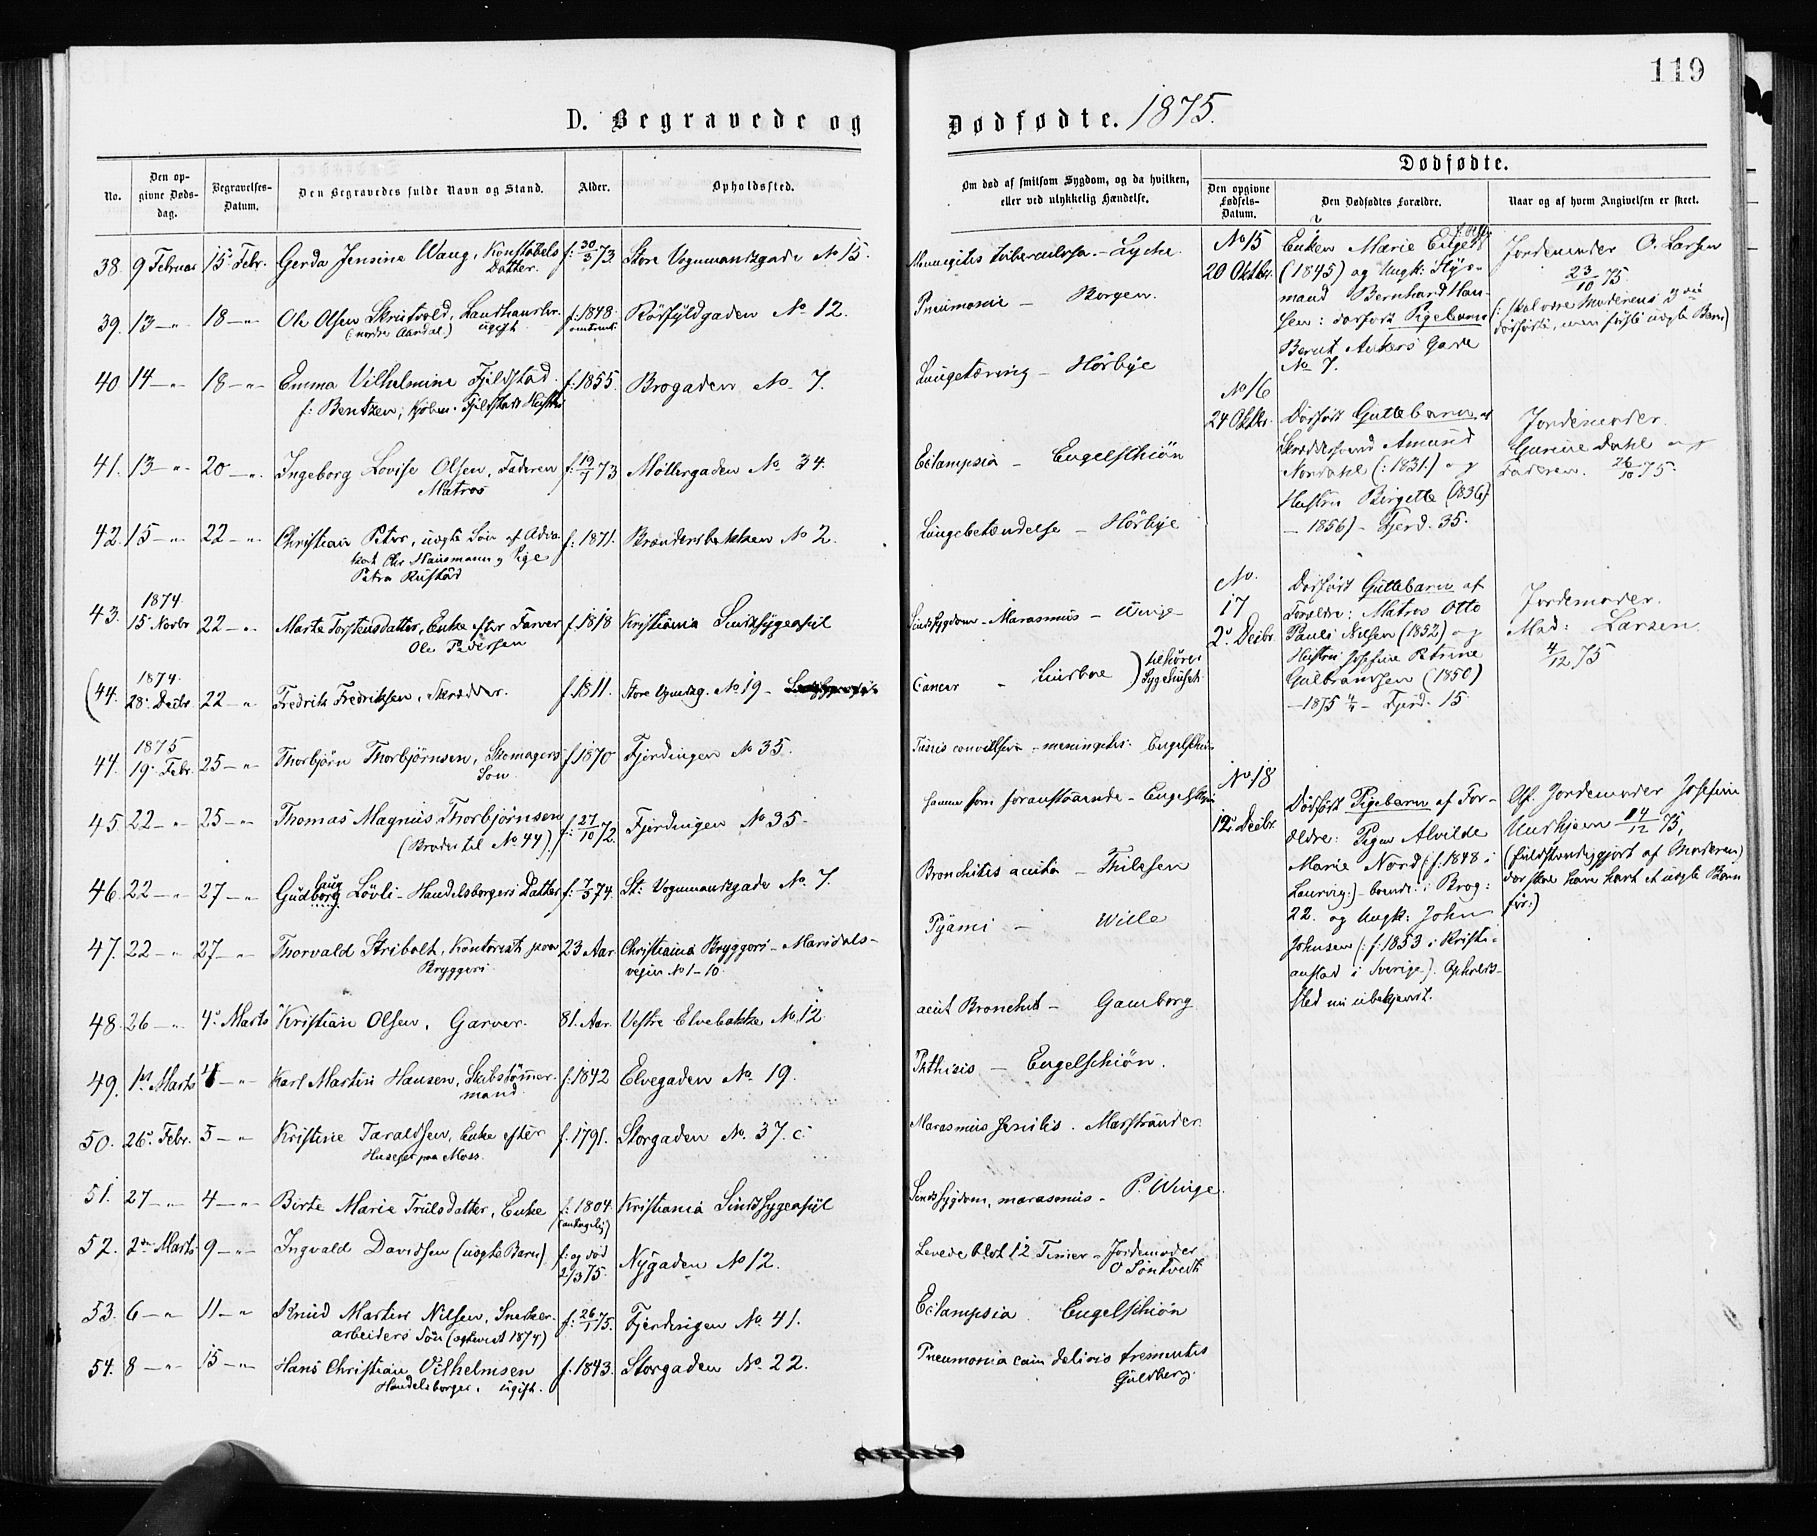 119
D. Begravede og
Dødfødte. 1875.
No.
Den opgivne Dødsdag.
Begravelses-Datum.
Den Begravedes fulde Navn og Stand.
Alder.
Opholdssted.
Om død af smitsom Sygdom, og da hvilken, eller ved ulykkelig Hændelse.
Dødfødte.
Den opgivne Fødsels-Datum.
Den Dødfødtes Forældre.
Naar og af hvem Angivelsen er skeet.
38. 9 Februar 15 Febr. Gerda Jensine Waug, Konstabels Datter. f: 30/3 73 Store Vognmandsgade No 15. Meningitis tuberculosa - Lyche
39. 13 -"- 18 -"- Ole Olsen Skrutvold, Landhandler. (nordre Aardal) ugift. f: 1848 omtrent Rörfyldgaden No 12. Pneumonie - Borgen.
40 14 -"- 18 -"- Emma Vilhelmine Fjeldstad f: Bentzen, Kjöbm. Fjeldstads Hustru f: 1855. Brogaden No 7. Lungetæring - Hörbye
41. 13 -"- 20 -"- Ingeborg Lovise Olsen, Faderen Matros f: 19/1 73 Möllergaden No 34. Eclampsia - Engelschiön
42. 15 -"- 22 -"- Christian Peter, uægte Sön af Advokat Chr Hausmann og Pige Petra Rustad f: 1871. Brændersbakken No 2. Lungebetændelse - Hörbye
43. 1874. 15 Novbr 22 -"- Marte Torstensdatter, Enke efter Farver Ole Pedersen f. 1818 Kristiania Sindssygeasyl Sindssygdom - Marasmus - Winge
(44. 1874. 28. Decbr. 22 -"- Fredrik Fredriksen, Skrædder. f. 1811. Store Vgnmdsg. No 19 - Cancer -
44. 1875 19. Febr. 25 -"- Thorbjørn Thorbjørnsen, Skomagers Sön. f. 1870 Fjerdingen No 35. Tussis convulsiva - meningitis. Engelschiön
45 22 -"- 25 -"- Thomas Magnus Thorbjørnsen (Broder til No 44) f: 27/10 72. Fjerdingen No 35. samme som foranstaaende - Engelschiön
46. 22 -"- 27 -"- Gudborg Lövli - Handelsborgers Datter f. 7/3 74. St: Vognmandsgade No 7. Bronchitis acuta - Thilesen
47. 22 -"- 27 -"- Thorvald Stribolt, Kontorist paa Bryggeri. 23 Aar. Christiania Bryggeri - Maridalsveien No 1-10. Pyämi - Wille
48. 26 -"- 4. Marts Kristian Olsen, Garver. 81. Aar. Vestre Elvebakke No 12 acut Bronchit - Gamborg
49. 1st Marts 4 -"- Karl Martin Hansen, Skibstömmermand. f: 1842 Elvegaden No 19. Phthisis - Engelschiön.
50. 26. Febr. 5 -"- Kristine Taraldsen, Enke efter Huseier paa Moss. f. 1791. Storgaden No. 37. c. Marasmus senilis. Marstrander.
51. 27 -"- 4 -"- Birte Marie Trulsdatter, Enke f: 1804. (antagelig) Kristiania Sindssygeasyl Sindssygdom, marasmus - P. Winge.
52. 2den Marts. 9 -"- Ingvald Davidsen (uægte Barn) f: og död 2/3 75. Nygaden No 12. Levede blot 12 Timer - Jordemoder O Söntvedt
53. 6 -"- 11 -"- Knud Martin Nilsen, Snekkerarbeiders Sön (ægteviet 1874) f: 26/1 75. Fjerdingen No 41. Eclampsia. Engelschiön
54. 8 -"- 15 -"- Hans Christian Vilhelmsen Handelsborger, ugift. f. 1843. Storgaden No. 22. Pneumonia cum delirio trementis Guldberg.
No 15
20 Oktbr.
Enken Marie
(1845) og Ungk: Styrmand Bernhard Hansen: dødfødt Pigebarn
Bernt Ankers Gade No 7.
Jordemoder O. Larsen 23/10 75
No 16
24 Oktbr.
Dødfødt Guttebarn af
Skrædder Amund
Nordahl (: 1831:) og
Hustru Birgitte (1836)
- 1856) - Fjerd. 35.
Jordemoder
Gurine Dahl og
Faderen. 26/10 75.
No. 17
2. Decbr.
Dødfødt Guttebarn af
Forældre: Matros Otto
Pauli Nilsen (1852) og
Hustru Josefine Petrine
Gulbrandsen (1850)
- 1875 - Fjerd. 15
Jordemoder
Mad: Larsen
4/12 75
No. 18
12. Decbr.
Dödfödt Pigebarn af Forældre: Pigen Alvilde
Marie Nord (: f. 1848 i
Laurvig:) - boende i Brog:
22. og Ungk: John
Johnsen (: f. 1853 i Kristianstad i Sverige). Opholdssted nu ubekjendt.
Af Jordemoder Josefine
14/12 75,
(fuldstændiggjort af Moderen,
der skal have havt et uægte Barn
før:)